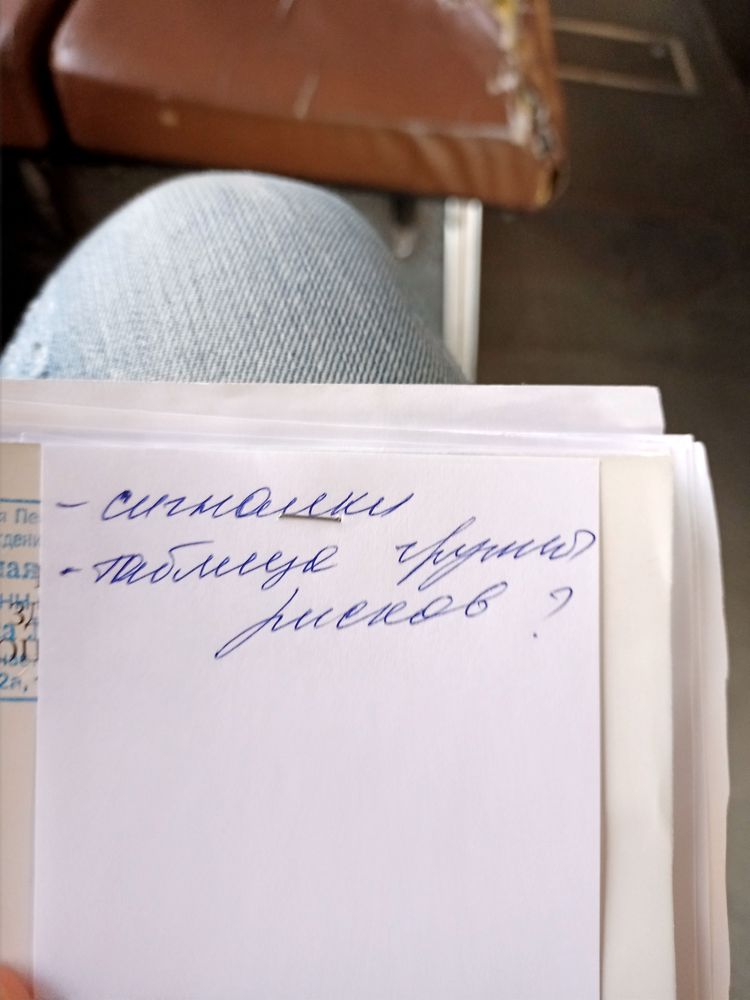 - сигналки
- таблица группы
рисков ?
я Пе
дени
ная
ны
зд
2а,